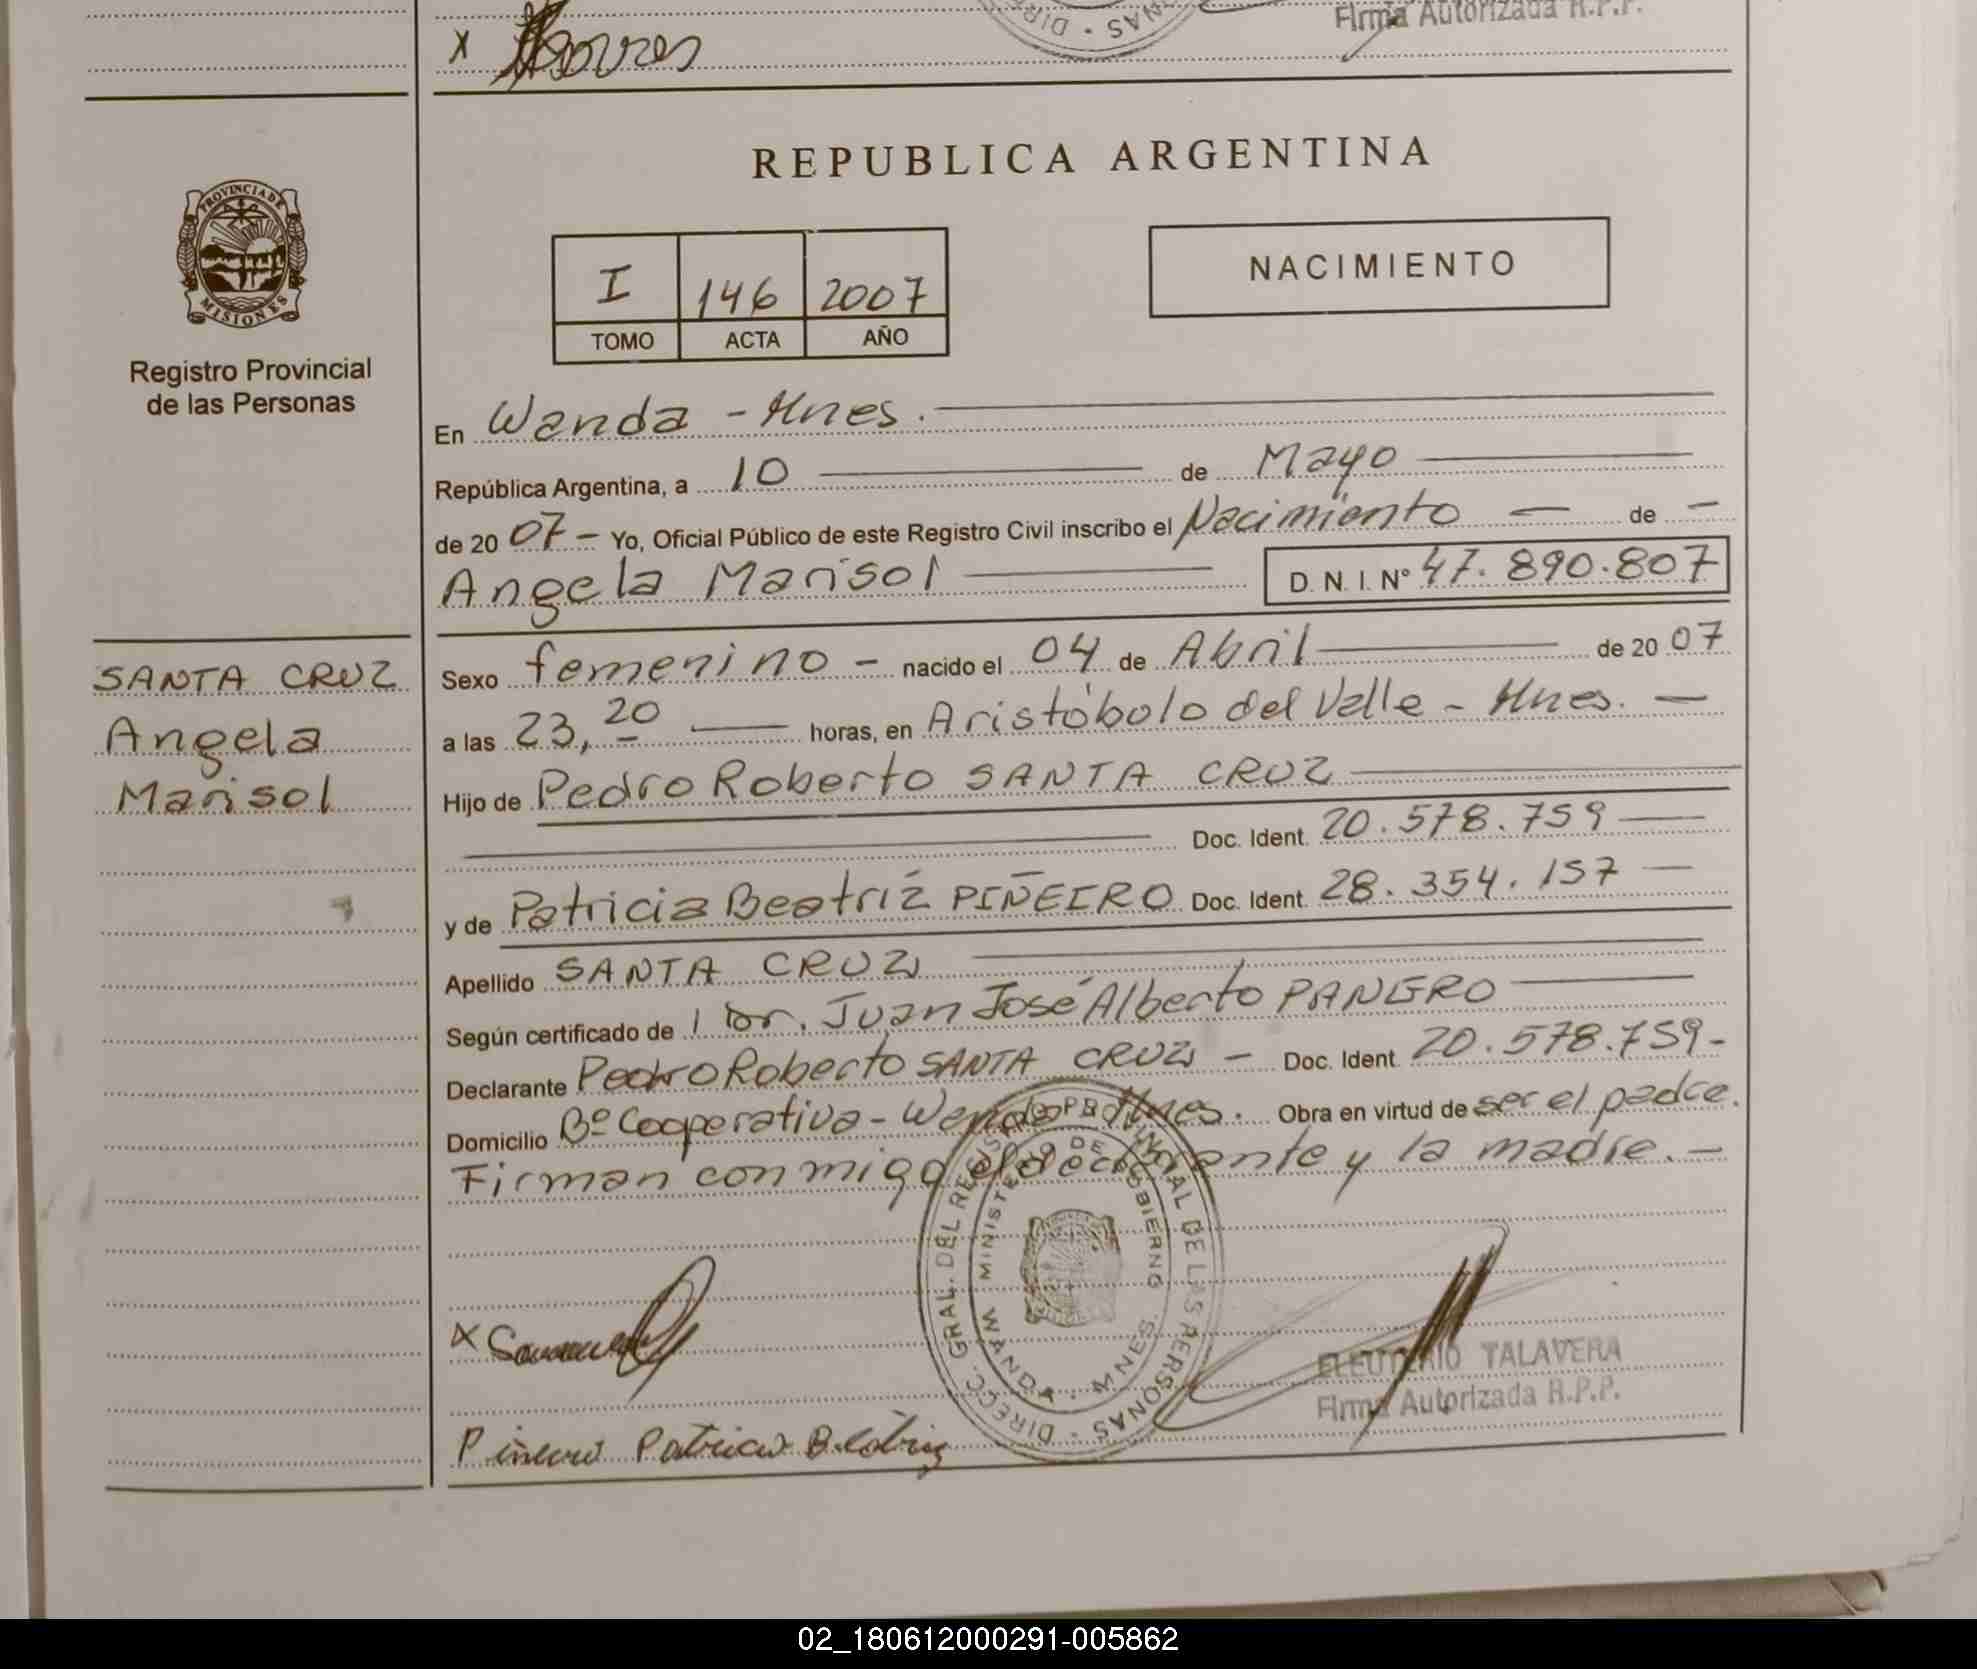 DIRE
NAS
Firma Autorizada R.P.P.
x
REPUBLICA ARGENTINA
PROVINCIA DE
MISIONES
Registro Provincial
de las Personas
I 146 2007
TOMO ACTA AÑO
NACIMIENTO
En Wanda - Mnes.
República Argentina, a 10 de Mayo
de 20 07 - Yo, Oficial Público de este Registro Civil inscribo el Nacimiento — de —
Angela Marisol D. N. I. Nº 47.890.807
SANTA CRUZ
Angela
Marisol
Sexo femenino - nacido el 04 de Abril de 20 07
a las 23,20 horas, en Aristóbolo del Valle - Mnes. —
Hijo de Pedro Roberto SANTA CRUZ
Doc. Ident. 20.578.759
y de Patricia Beatríz PIÑEIRO Doc. Ident. 28.354.157
Apellido SANTA CRUZ
Según certificado de l Dr. Juan José Alberto PANGRO
Declarante Pedro Roberto SANTA CRUZ - Doc. Ident. 20.578.759-
Domicilio Bº Cooperativa - Wanda - Mnes. Obra en virtud de ser el padre.
Firman conmigo el declarante y la madre. —
DIRECC. GRAL. DEL REGISTRO PROVINCIAL DE LAS PERSONAS
MINISTERIO DE GOBIERNO
WANDA - MNES.
x
ELEUTERIO TALAVERA
Firma Autorizada R.P.P.
Piñeiro Patricia Beatriz
02_180612000291-005862